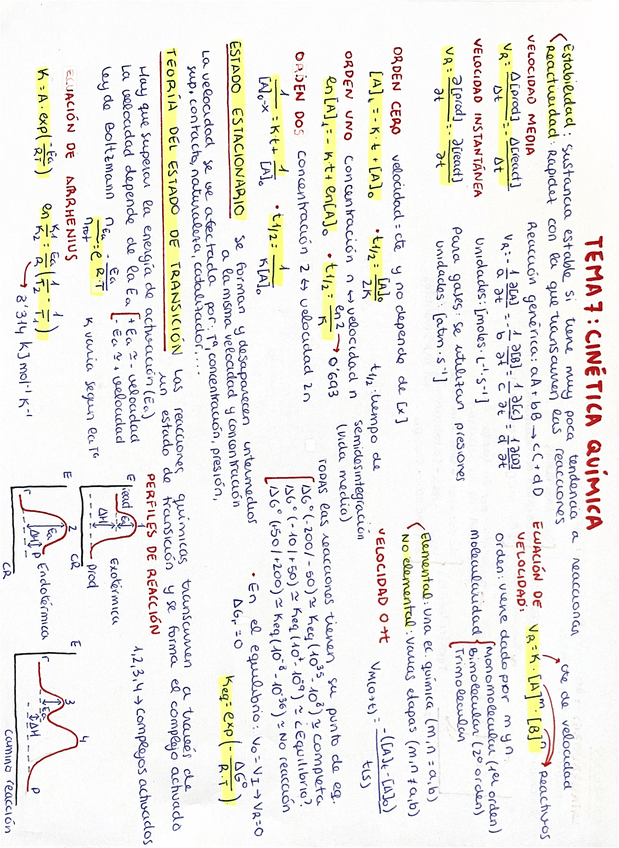 TEMA 7: CINÉTICA QUÍMICA
Estabilidad: sustancia estable si tiene muy poca tendencia a reaccionar
Reactividad: rapidez con la que transcurren las reacciones
VELOCIDAD MEDIA
V_R = Δ[prod]/Δt = - Δ[react]/Δt
VELOCIDAD INSTANTÁNEA
V_R = ∂[prod]/∂t = - ∂[react]/∂t
Reacción genérica: aA + bB → cC + dD
V_R = - 1/a ∂[A]/∂t = - 1/b ∂[B]/∂t = 1/c ∂[C]/∂t = 1/d ∂[D]/∂t
Unidades: [moles · L⁻¹ s⁻¹]
Para gases: se utilizan presiones
unidades: [atm · s⁻¹]
ECUACIÓN DE VELOCIDAD: V_R = K · [A]^m · [B]^n
cte de velocidad
Reactivos
orden: viene dado por m y n
Molecularidad
Monomolecular (1er orden)
Bimolecular (2º orden)
Trimolecular
Elemental: una ec química (m,n = a,b)
No elemental: varias etapas (m,n ≠ a,b)
ORDEN CERO velocidad = cte y no depende de [x]
[A]_t = - K · t + [A]₀ · t1/2 = [A]₀/2K
t1/2: tiempo de semidesintegración
(vida media)
ORDEN UNO concentración n ↔ velocidad n
ln[A]_t = - K t + ln[A]₀ · t1/2 = ln 2/K → 0'693
ORDEN DOS concentración 2 ↔ velocidad 2n
1/[A]₀-x = K t + 1/[A]₀ · t1/2 = 1/K[A]₀
VELOCIDAD 0→t V_M(0→t) = -([A]t - [A]₀)/t(s)
Todas las reacciones tienen su punto de eq.
ΔG° (-200/-50) ≃ Keq (10³⁵ · 10⁸) ≃ completa
ΔG° (-10/+50) ≃ Keq (10² · 10⁻⁹) ≃ ¿Equilibrio?
ΔG° (+50/+200) ≃ Keq (10⁻⁸ - 10⁻³⁶) ≃ No reacción
· En el equilibrio: V_D = V_I → V_R = 0
ΔG_r = 0
Keq = exp(- ΔG°/R·T)
ESTADO ESTACIONARIO se forman y desaparecen intermedios
a la misma velocidad y concentración
La velocidad se ve afectada por: Tª, concentración, presión,
sup, contacto, naturaleza, catalizador...
TEORÍA DEL ESTADO DE TRANSICIÓN las reacciones químicas transcurren a través de
un estado de transición y se forma el complejo activado
Hay que superar la energía de activación (Ea)
La velocidad depende de la Ea
+ Ea ≃ - velocidad
- Ea ≃ + velocidad
Ley de Boltzmann n_Ea/n_tot = e^(-Ea/R·T)
K varía según la Tª
ECUACIÓN DE ARRHENIUS
K = A · exp(-Ea/R·T) ln K1/K2 = Ea/R (1/T2 - 1/T1)
→ 8'314 KJ mol⁻¹ K⁻¹
PERFILES DE REACCIÓN
1,2,3,4 → complejos activados
E
react
Ea
1
ΔH
prod
CR
Exotérmica
E
r
2
Ea
ΔH
P
CR
Endotérmica
E
r
3
Ea
ΔH
4
P
camino reacción